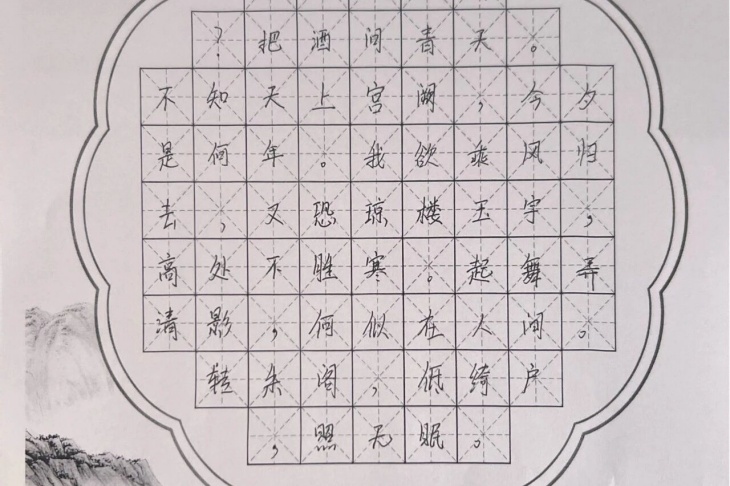 ？把酒问青天。
不知天上宫阙，今夕
是何年。我欲乘风归
去，又恐琼楼玉宇，
高处不胜寒。起舞弄
清影，何似在人间。
转朱阁，低绮户
，照无眠。